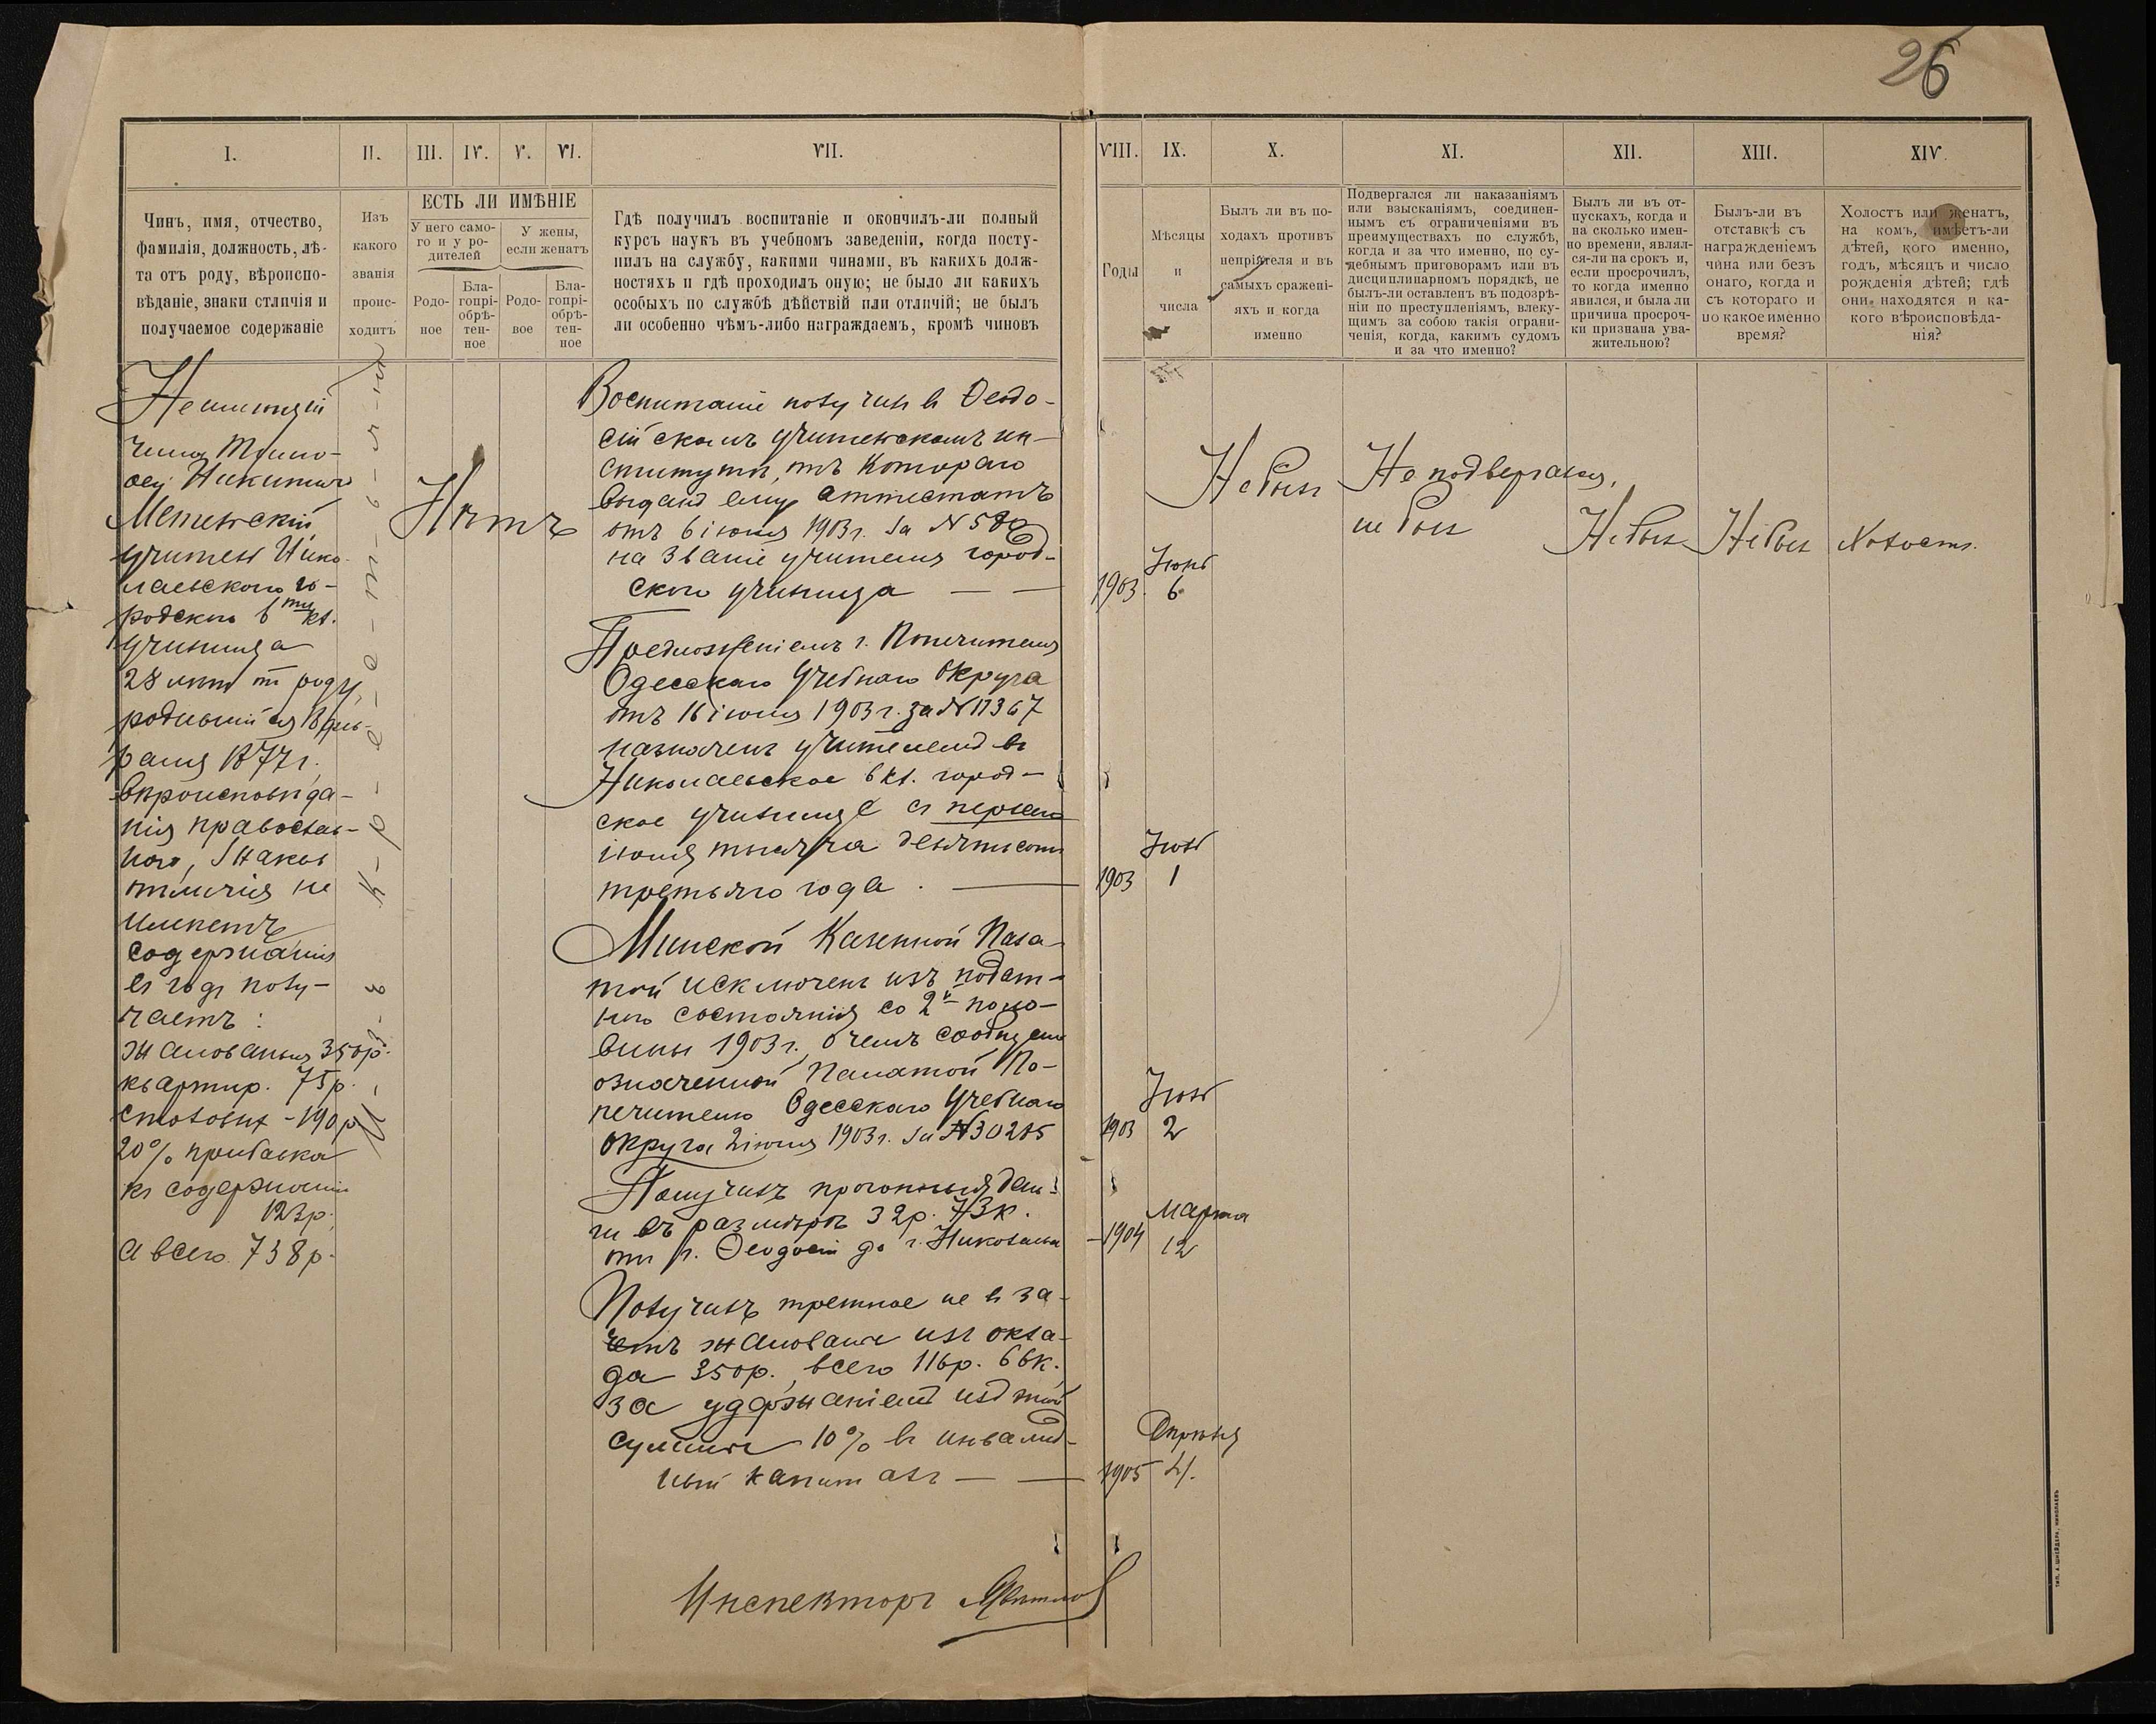 26
I.
II.
III.
IV.
V.
VI.
VII.
VIII.
IX.
X.
XI.
XII.
XIII.
XIV.
Чинъ, имя, отчество,
фамилія, должность, лѣ-
та отъ роду, вѣроиспо-
вѣданіе, знаки отличія и
получаемое содержаніе
Изъ
какого
званія
проис-
ходитъ
ЕСТЬ ЛИ ИМѢНІЕ
У него само-
го и у ро-
дителей
У жены,
если женатъ
Родо-
ное
Бла-
гопрі-
обрѣ-
тен-
ное
Родо-
вое
Бла-
гопрі-
обрѣ-
тен-
ное
Гдѣ получилъ воспитаніе и окончилъ-ли полный
курсъ наукъ въ учебномъ заведеніи, когда посту-
пилъ на службу, какими чинами, въ какихъ долж-
ностяхъ и гдѣ проходилъ оную; не было ли какихъ
особыхъ по службѣ дѣйствій или отличій; не былъ
ли особенно чѣмъ-либо награждаемъ, кромѣ чиновъ
Годы
Мѣсяцы
и
числа
Былъ ли въ по-
ходахъ противъ
непріятеля и въ
самыхъ сражені-
яхъ и когда
именно
Подвергался ли наказаніямъ
или взысканіямъ, соединен-
нымъ съ ограниченіями въ
преимуществахъ по службѣ,
когда и за что именно, по су-
дебнымъ приговорамъ или въ
дисциплинарномъ порядкѣ, не
былъ-ли оставленъ въ подозрѣ-
ніи по преступленіямъ, влеку-
щимъ за собою такія ограни-
ченія, когда, какимъ судомъ
и за что именно?
Былъ ли въ от-
пускахъ, когда и
на сколько имен-
но времени, являл-
ся-ли на срокъ и,
если просрочилъ,
то когда именно
явился, и была ли
причина просроч-
ки признана ува-
жительною?
Былъ-ли въ
отставкѣ съ
награжденіемъ
чина или безъ
онаго, когда и
съ котораго и
по какое именно
время?
Холостъ или женатъ,
на комъ, имѣетъ-ли
дѣтей, кого именно,
годъ, мѣсяцъ и число
рожденія дѣтей; гдѣ
они находятся и ка-
кого вѣроисповѣда-
нія?
Неимѣющій
чина
Никитичъ
учитель Нико-
лаевскаго го-
родского 6ти кл.
училища
28 лѣтъ отъ роду,
родившійся 18 фев-
раля 1877 г.
вѣроисповѣда-
нія православ-
наго, знаковъ
отличія не
имѣетъ
содержанія
въ годъ полу-
чаетъ:
жалованья 350 р.
квартир. 75 р.
столовыхъ - 190 р
20% прибавка
къ содержанію
123 р.
а всего 738 р.
Нѣтъ
Воспитаніе получилъ въ Ѳеодо-
сійскомъ учительскомъ ин-
ститутѣ, отъ котораго
выданъ ему аттестатъ
отъ 6 іюня 1903 г. за №
на званіе учителя город-
ского училища
Предложеніемъ г. Попечителя
Одесскаго Учебнаго Округа
отъ 16 іюля 1903 г. за № 17367
назначенъ учителемъ въ
Николаевское 6 кл. город-
ское училище съ перваго
іюля тысяча девятьсотъ
третьяго года.
Минской Казенной Пала-
той исключенъ изъ подат-
ного состоянія со 2й поло-
вины 1903 г., о чемъ сообщено
означенной Палатой По-
печителю Одесскаго Учебнаго
округа 2 іюля 1903 г. за № 30285
Получилъ прогонныя день-
ги въ размѣрѣ 32 р. 73 к.
отъ г. Ѳеодосіи до г. Николаева
Получилъ третное не въ за-
четъ жалованье изъ окла-
да 350 р., всего 116 р. 66 к.
за удержаніемъ изъ той
суммы 10% въ инвалид-
ный капиталъ
Инспекторъ
Іюнь
1903 6
Іюль
1903 1
Іюль
1903 2
Марта
1904 12
Апрѣля
1905 4.
Не былъ
Не подвергался,
не былъ
Не былъ
Не былъ
Холостъ.
ТИП. А. ШНЕЙДЕРА, НИКОЛАЕВЪ